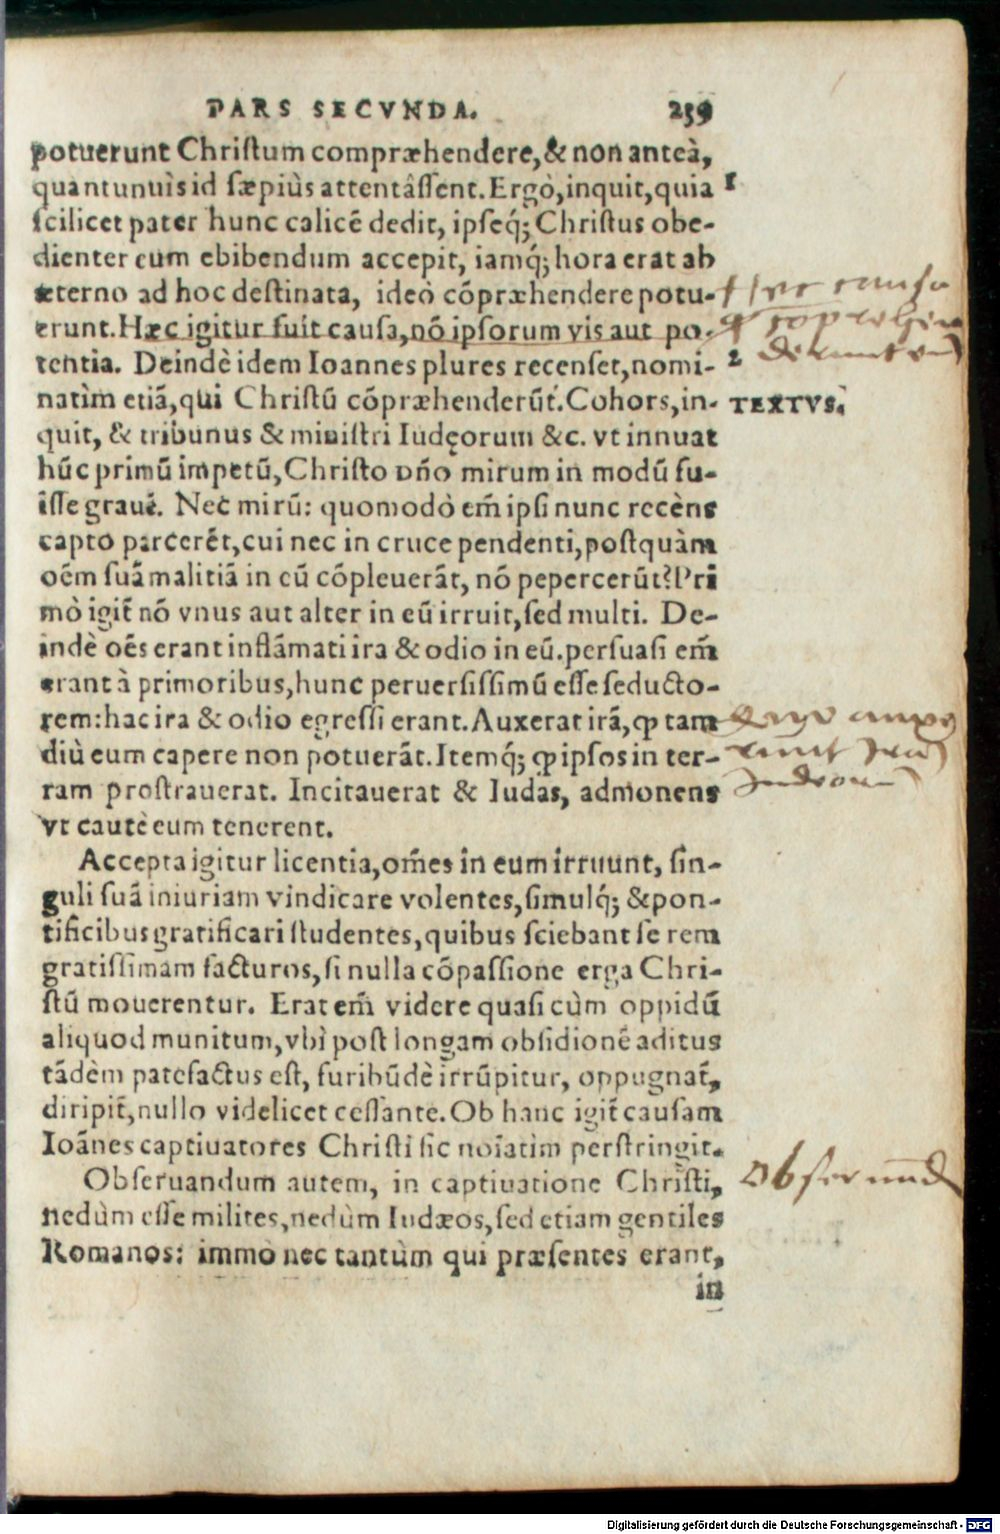 PARS SECVNDA. 259
potuerunt Chriſtum compræhendere, & non anteà,
quantunuìs id ſæpiùs attentâſſent. Ergò, inquit, quia 1
ſcilicet pater hunc calicẽ dedit, ipſeq́; Chriſtus obe-
dienter eum ebibendum accepit, iamq́; hora erat ab
æterno ad hoc deſtinata, ideò cõpræhendere potu-
erunt. Hæc igitur fuit cauſa, nõ ipſorum vis aut po-
tentia. Deindè idem Ioannes plures recenſet, nomi- 2
natìm etiã, qui Chriſtũ cõpræhenderũt. Cohors, in- TEXTVS.
quit, & tribunus & miniſtri Iudęorum &c. vt innuat
hũc primũ impetũ, Chriſto dño mirum in modũ fu-
iſſe grauẽ. Nec mirũ: quomodò em̃ ipſi nunc recèns
capto parcerẽt, cui nec in cruce pendenti, poſtquàm
oẽm ſuã malitiã in eũ cõpleuerãt, nõ pepercerũt? Pri
mò igit̃ nõ vnus aut alter in eũ irruit, ſed multi. De-
indè oẽs erant inflãmati ira & odio in eũ. perſuaſi em̃
erant à primoribus, hunc peruerſiſſimũ eſſe ſeducto-
rem: hac ira & odio egreſſi erant. Auxerat irã, ꝙ tam
diù eum capere non potuerãt. Itemq́; ꝙ ipſos in ter-
ram proſtrauerat. Incitauerat & Iudas, admonens
vt cautè eum tenerent.
Accepta igitur licentia, om̃es in eum irruunt, ſin-
guli ſuã iniuriam vindicare volentes, ſimulq́; & pon-
tificibus gratificari ſtudentes, quibus ſciebant ſe rem
gratiſſimam facturos, ſi nulla cõpaſſione erga Chri-
ſtũ mouerentur. Erat em̃ videre quaſi cùm oppidũ
aliquod munitum, vbi poſt longam obſidionẽ aditus
tãdèm patefactus eſt, furibũdè irrũpitur, oppugnat̃,
diripit̃, nullo videlicet ceſſante. Ob hanc igit̃ cauſam
Ioãnes captiuatores Chriſti ſic noĩatìm perſtringit.
Obſeruandum autem, in captiuatione Chriſti,
nedùm eſſe milites, nedùm Iudæos, ſed etiam gentiles
Romanos: immò nec tantùm qui præſentes erant,
in
Digitalisierung gefördert durch die Deutsche Forschungsgemeinschaft - DFG